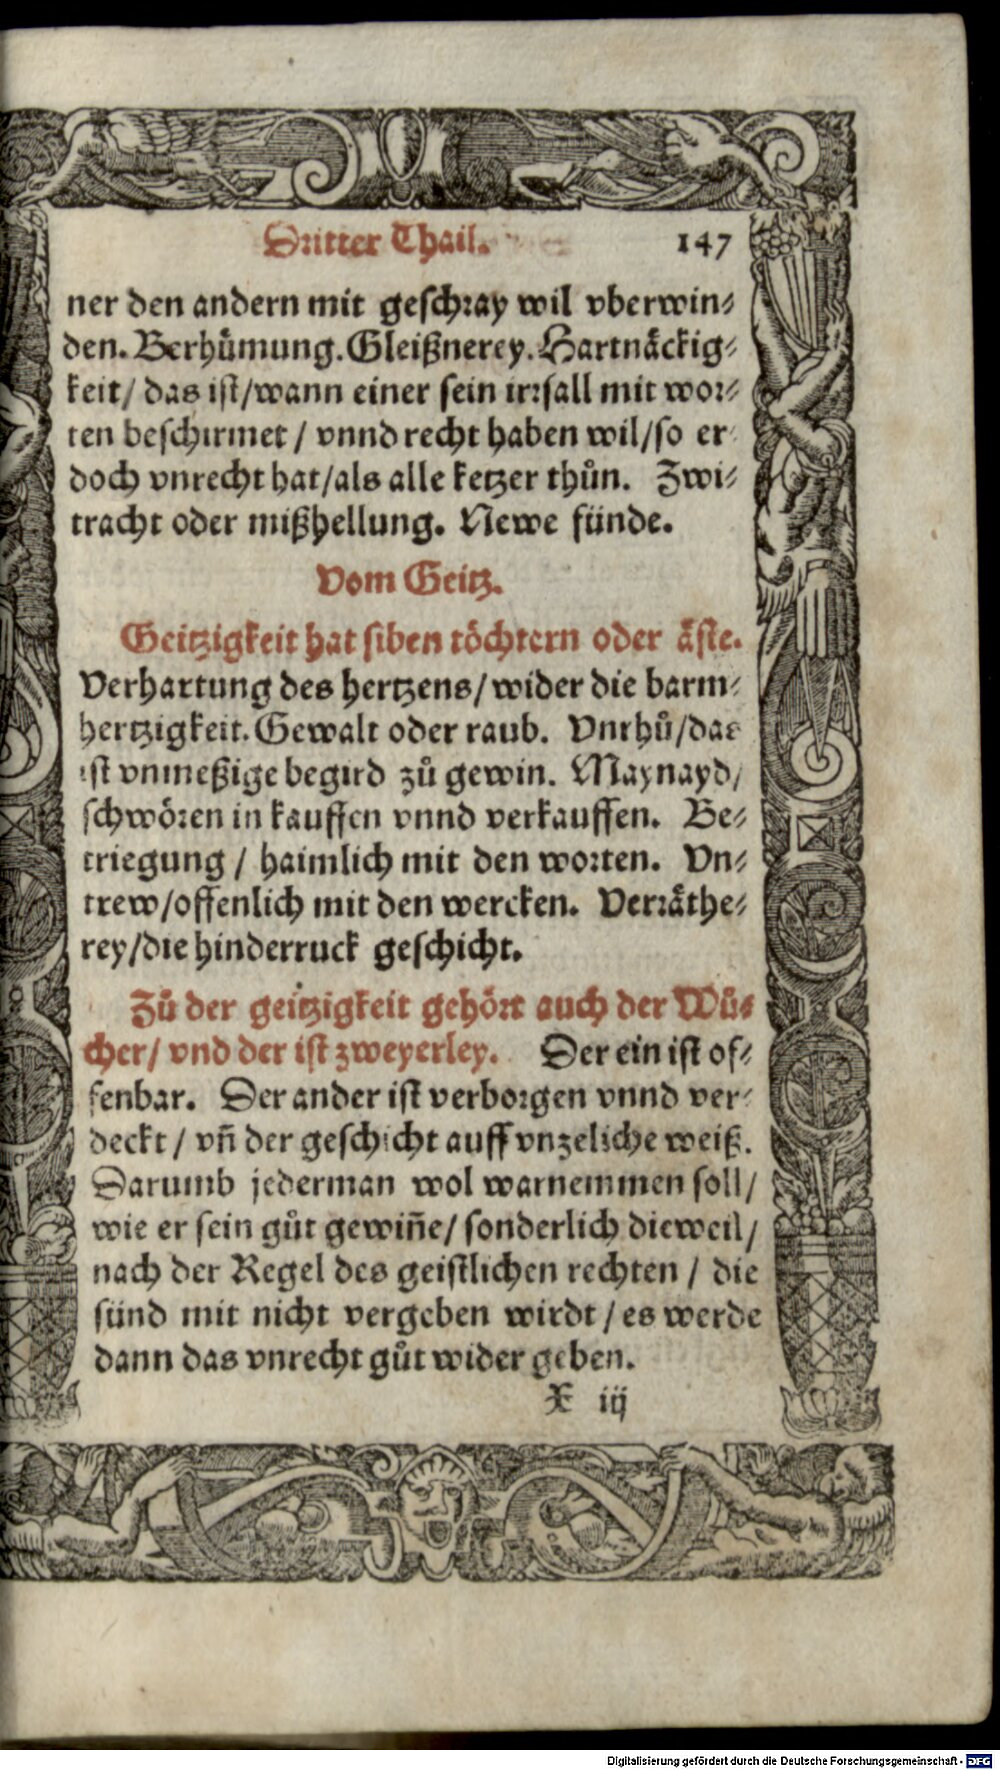 Dritter Thail. 147
ner den andern mit geschray wil vberwin⸗
den. Berhůmung. Gleißnerey. Hartnäckig⸗
keit/ das ist/wann einer sein irrsall mit wor⸗
ten beschirmet / vnnd recht haben wil/so er
doch vnrecht hat/als alle ketzer thůn. Zwi⸗
tracht oder mißhellung. Newe fünde.
Vom Geitz.
Geitzigkeit hat siben töchtern oder äste.
Verhartung des hertzens/ wider die barm⸗
hertzigkeit. Gewalt oder raub. Vnrhů/das
ist vnmeßige begird zů gewin. Maynayd/
schwören in kauffen vnnd verkauffen. Be⸗
triegung / haimlich mit den worten. Vn⸗
trew/offenlich mit den wercken. Verräthe⸗
rey/die hinderruck geschicht.
Zů der geitzigkeit gehört auch der Wů⸗
cher/ vnd der ist zweyerley. Der ein ist of⸗
fenbar. Der ander ist verborgen vnnd ver⸗
deckt / vñ der geschicht auff vnzeliche weiß.
Darumb jederman wol warnemmen soll/
wie er sein gůt gewiñe/ sonderlich dieweil/
nach der Regel des geistlichen rechten / die
sünd mit nicht vergeben wirdt / es werde
dann das vnrecht gůt wider geben.
X iij
Digitalisierung gefördert durch die Deutsche Forschungsgemeinschaft - DFG